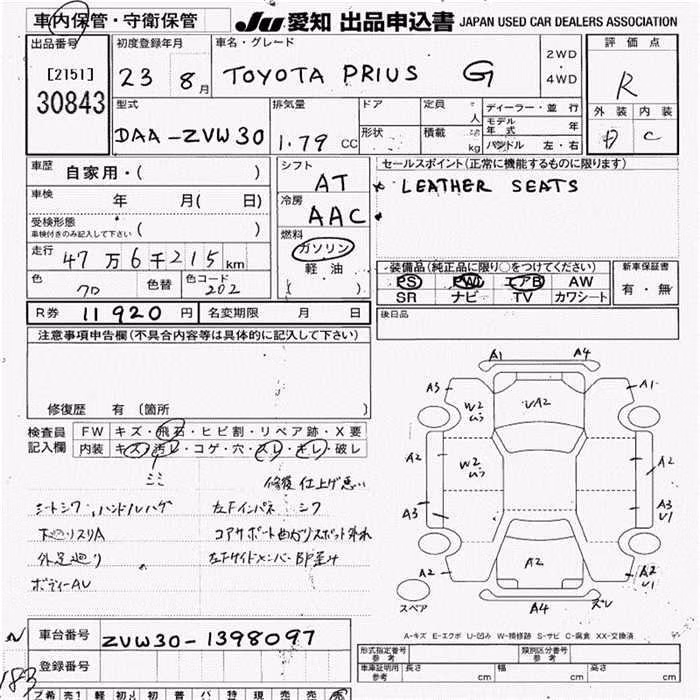 車内保管・守衛保管 JU 愛知 出品申込書 JAPAN USED CAR DEALERS ASSOCIATION
出品番号 初度登録年月 車名・グレード 2WD・4WD 評価点
[2151] 23 8月 TOYOTA PRIUS G R
30843
型式 排気量 ドア 定員 人 ディーラー・並行 外装 内装
DAA-ZVW30 1.79 CC 形状 積載 kg モデル年式 年 D C
ハンドル 左・右
車歴 自家用・( ) シフト AT セールスポイント(正常に機能するものに限ります)
* LEATHER SEATS
車検 年 月( 日) 冷房 AAC
受検形態 ( )
車検付きのみ記入して下さい
走行 47万6千215km 燃料 ガソリン
軽油
( )
装備品(純正品に限り○をつけてください) 新車保証書
PS PW エアB AW 有・無
SR ナビ TV カワシート
色 クロ 色替 色コード 202
R券 11920円 名変期限 月 日 後日品
注意事項申告欄(不具合内容等は具体的に記入して下さい)
修復歴 有 〔箇所 〕
検査員記入欄 FW キズ・飛石・ヒビ割・リペア跡・X要
内装 キズ・汚レ・コゲ・穴・スレ・キレ・破レ
ミミ 修復仕上げ悪い
シートシワ、ハンドルハゲ 左Fインパネ シワ
下廻りスリA コアサポート曲がりスポット外れ
外足廻り 左Fサイドメンバー BP歪み
ボディーAU
A1 A4
A3 W2 ムラ UA2 A1
A2 W2 ムラ A2
A3 A3 U1
A2 A2 A2 U1
スペア A4 ズレ
A-キズ E-エクボ U-凹み W-補修跡 S-サビ C-腐食 XX-交換済
車台番号 ZVW30-1398097
登録番号
形式指定番号 参考 類別区分番号 参考
車庫証明用 参考 長さ cm 幅 cm 高さ cm
183